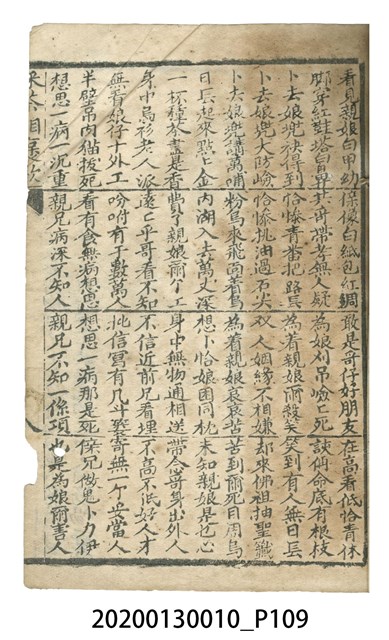 看見親娘白甲幼 親像白紙包紅綢 敢是哥仔好朋友 在高看低恰青体
脚穿紅鞋塔白界 共哥帶孝無人疑 為娘刈吊噞亡死 談侢命底有根枝
卜去娘兜袂得到 恰慘青番把路長 為着親娘爾殺笑 笑到有人無日長
卜去娘兜大防嶮 恰慘挑油過石尖 双人姻緣不相嫌 却來佛祖抽聖籤
卜去娘兜講萬哺 粉鳥來飛 為着親娘哀哀苦 苦到爾死目周烏
日長起來點上金 內湖入去萬丈深 想卜恰娘困同枕 未知親娘是乜心
一杯種 盡是香 親娘爾个工 身中無物通相送 帶念哥身出外人
身中烏衫老人派 遠亡乎哥看不知 不信近前見看埋 不高不低好人才
無看娘仔十外工 吩咐有了數萬人 批信寫有几斗 寄無一个妥當人
半壁吊肉猫拔死 看有食無病想思 想思一病那是死 兄做鬼卜力伊
想思病一沉重 親兄病深不知人 親兄不知一條項 也是為娘爾害人
相褒歌
20200130010_P109